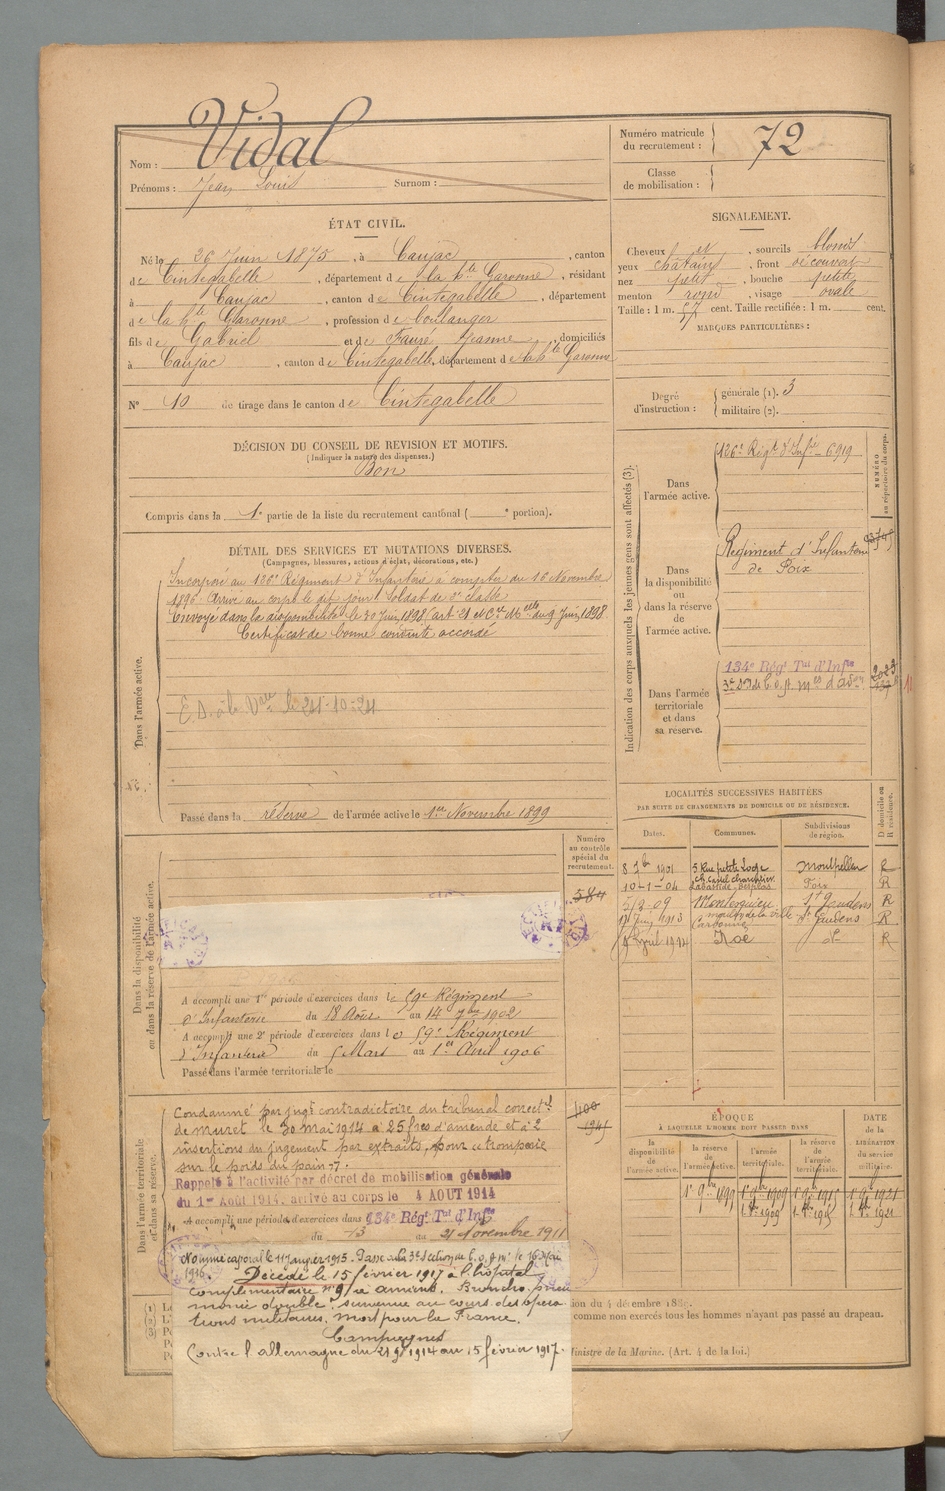 Nom : Vidal
Prénoms : Jean Louis Surnom :
Numéro matricule
du recrutement : 72
Classe
de mobilisation :
ÉTAT CIVIL.
Né le 26 Juin 1875, à Caujac, canton
de Cintegabelle, département de la hte Garonne, résidant
à Caujac, canton de Cintegabelle, département
de la hte Garonne, profession de boulanger
fils de Gabriel et de Faure Jeanne, domiciliés
à Caujac, canton de Cintegabelle, département de la hte Garonne
N° 10 de tirage dans le canton de Cintegabelle
DÉCISION DU CONSEIL DE REVISION ET MOTIFS.
(Indiquer la nature des dispenses.)
Bon
Compris dans la 1e partie de la liste du recrutement cantonal ( e portion).
SIGNALEMENT.
Cheveux et sourcils blonds
yeux chatains, front découvert
nez petit, bouche petite
menton rond, visage ovale
Taille : 1 m. 67 cent. Taille rectifiée : 1 m. cent.
MARQUES PARTICULIÈRES :
Degré
d'instruction :
générale (1). 3
militaire (2).
Indication des corps auxquels les jeunes gens sont affectés (3).
NUMÉRO
au répertoire du corps.
Dans
l'armée active.
126e Régt d'Infie 6919
Dans
la disponibilité
ou
dans la réserve
de
l'armée active.
Régiment d'Infanterie
de Foix
Dans l'armée
territoriale
et dans
sa réserve.
134e Régt Tal d'Infie
3e Son de C.O.A.
DÉTAIL DES SERVICES ET MUTATIONS DIVERSES.
(Campagnes, blessures, actions d'éclat, décorations, etc.)
Dans l'armée active.
Incorporé au 126e Régiment d'Infanterie à compter du 16 Novembre
1896. Arrivé au corps le dit jour. Soldat de 2e classe
Envoyé dans la disponibilité le 30 Juin 1898 (art 21 et Cre Mlle du 9 Juin 1898
Certificat de bonne conduite accordé
Passé dans la réserve de l'armée active le 1er Novembre 1899
Numéro
au contrôle
spécial du
recrutement.
584
Dans la disponibilité
ou dans la réserve de l'armée active.
A accompli une 1re période d'exercices dans le 59e Régiment
d'Infanterie du 18 Août au 14 7bre 1902
A accompli une 2e période d'exercices dans le 59e Régiment
d'Infanterie du 5 Mars au 1er Avril 1906
Passé dans l'armée territoriale le
LOCALITÉS SUCCESSIVES HABITÉES
PAR SUITE DE CHANGEMENTS DE DOMICILE OU DE RÉSIDENCE.
Dates. Communes. Subdivisions
de région.
D domicile ou
R résidence.
8 7bre 1901 5 Rue petite Loge Montpellier R
10-1-04 Foix R
5/2-09 Montesquieu St Gaudens R
1913 moulin de la ville Carbonne St Gaudens R
Avril 1914 Noé R
Dans l'armée territoriale
et dans sa réserve.
Condamné par jugt contradictoire du tribunal correctel
de Muret le 30 mai 1914 à 25 frcs d'amende et à 2
insertions du jugement par extraits, pour "tromperie
sur le poids du pain".
Rappelé à l'activité par décret de mobilisation générale
du 1er Août 1914, arrivé au corps le 4 AOUT 1914
A accompli une période d'exercices dans 134e Régt Tal d'Infie
du 13 au 21 Novembre 1911
Nommé caporal le 11 Janvier 1915. Passé à la 3e Section de C.O.A. le 16 Mai
1916. Décédé le 15 février 1917 à l'hôpital
complémentaire n° 9 à Amiens. Broncho-pneu
monie double, survenue au cours des opéra
tions militaires. Mort pour la France.
Campagnes
Contre l'allemagne du 1914 au 15 février 1917.
ÉPOQUE
À LAQUELLE L'HOMME DOIT PASSER DANS
la
disponibilité
de
l'armée active.
la réserve
de
l'armée active.
l'armée
territoriale.
la réserve
de
l'armée
territoriale.
DATE
de la
LIBÉRATION
du service
militaire.
1er 9bre 1899 1er 9bre 1909 1er 9bre 1915 1er 9bre 1921
(1)
(2)
(3)
comme non exercés tous les hommes n'ayant pas passé au drapeau.
Ministre de la Marine. (Art. 4 de la loi.)